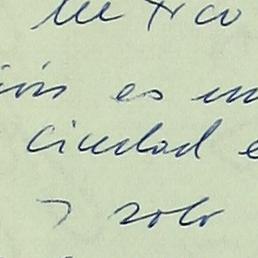 Mexico
ión es un
ciudad e
y solo